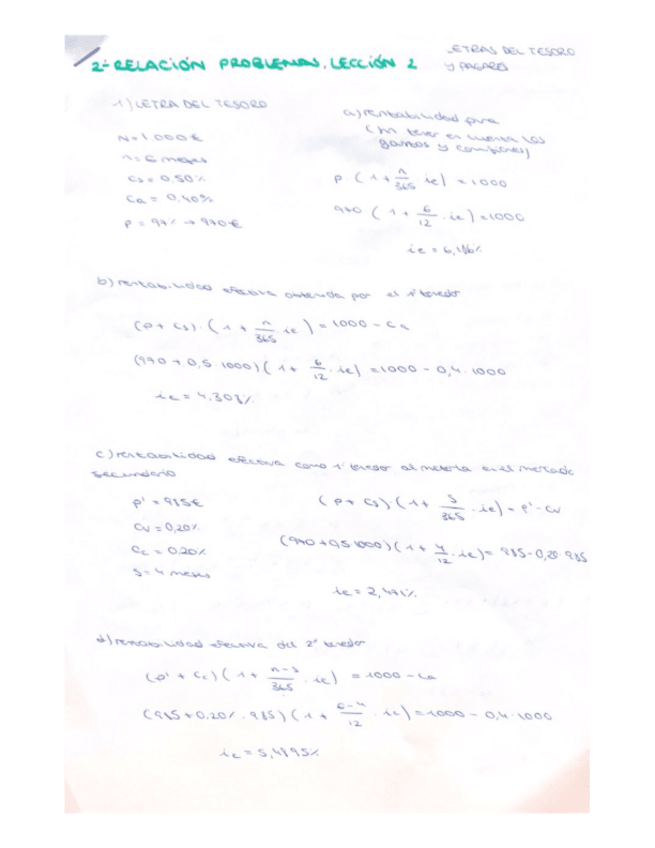 2ª RELACIÓN PROBLEMAS. LECCIÓN 2
LETRAS DEL TESORO
Y PAGARÉS
1) LETRA DEL TESORO
N = 1.000 €
n = 6 meses
Cs = 0,50%
Ca = 0,40%
P = 97% → 970 €
a) rentabilidad pura
(sin tener en cuenta los
gastos y comisiones)
P · (1 + n/365 · ie) = 1000
970 · (1 + 6/12 · ie) = 1000
ie = 6,186%
b) rentabilidad efectiva obtenida por el 1º tenedor
(P + Cs) · (1 + n/365 · ie) = 1000 - Ca
(970 + 0,5 · 1000) (1 + 6/12 · ie) = 1000 - 0,4 · 1000
ie = 4,308%
c) rentabilidad efectiva como 1º tenedor en el mercado
secundario
P' = 985 €
Cv = 0,20%
Cc = 0,20%
s = 4 meses
(P + Cs) · (1 + s/365 · ie) = P' - Cv
(970 + 0,5 1000) (1 + 4/12 · ie) = 985 - 0,20 · 985
ie = 2,471%
d) rentabilidad efectiva del 2º tenedor
(P' + Cc) (1 + n-s/365 · ie) = 1000 - Ca
(985 + 0,20% · 985) (1 + 6-4/12 · ie) = 1000 - 0,4 · 1000
ie = 5,4895%